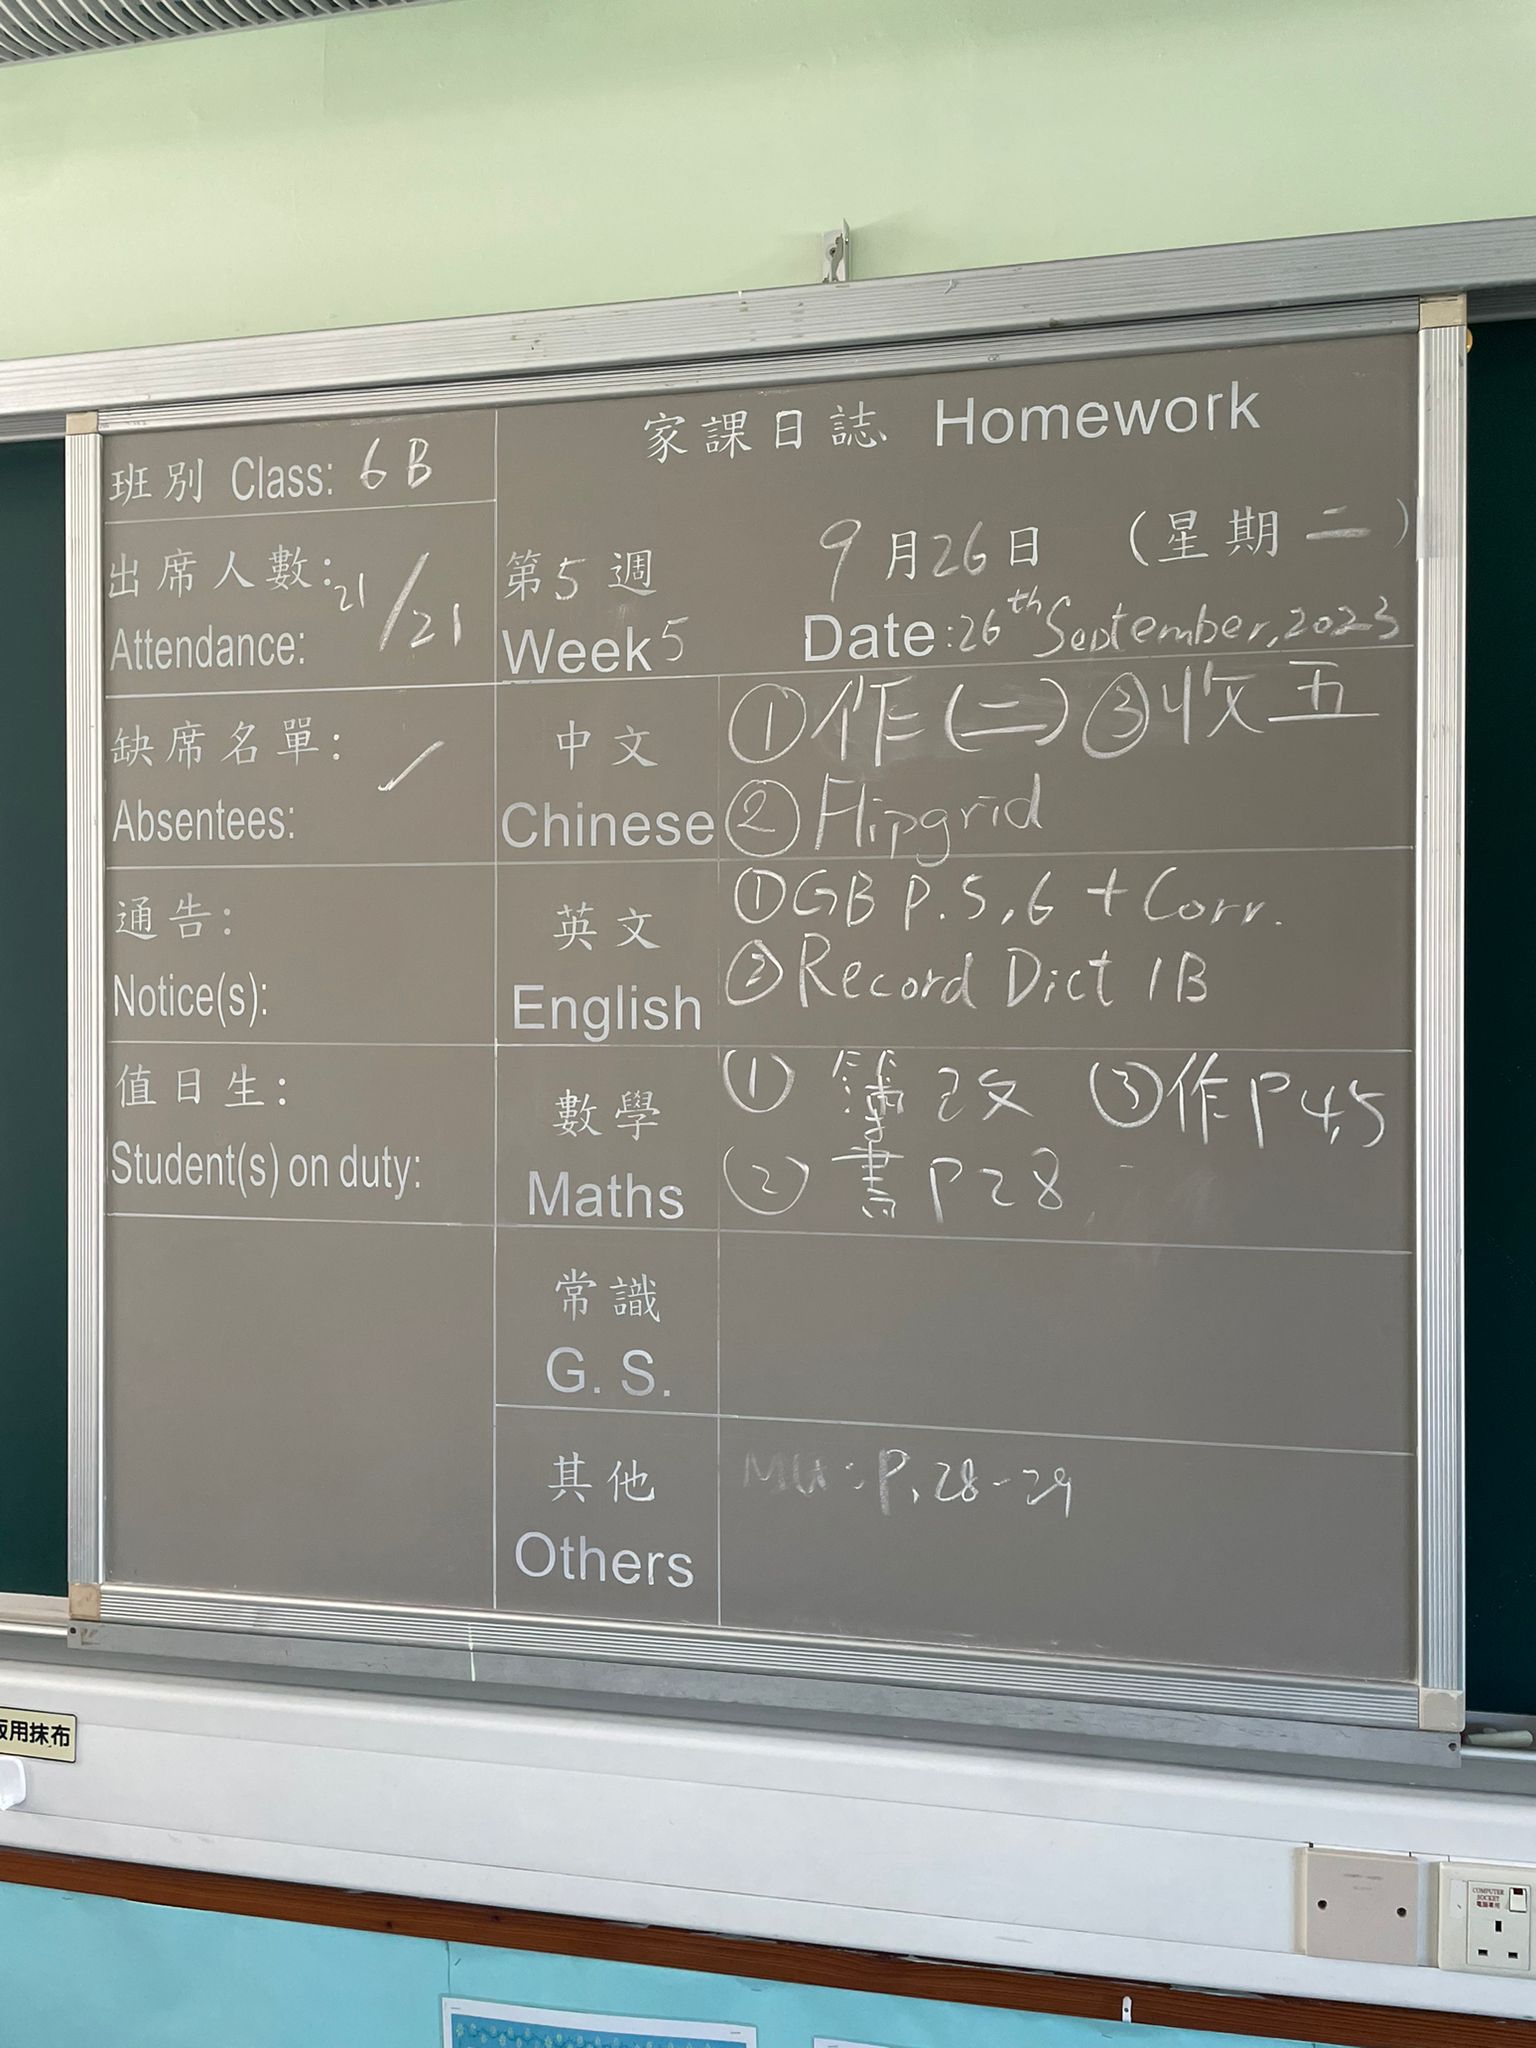 家課日誌 Homework
班別 Class: 6B
出席人數: 21/21
Attendance:
第5週 9月26日 (星期二)
Week 5 Date: 26th September, 2023
缺席名單: /
Absentees:
通告:
Notice(s):
值日生:
Student(s) on duty:
中文 ①作(二) ③收五
Chinese ②Flipgrid
英文 ①GB P.5,6 + Corr.
English ②Record Dict 1B
數學 ① 簿2改 ③作P4,5
Maths ② 書P28
常識
G. S.
其他 MU: P.28-29
Others
用抹布
COMPUTER
SOCKET
電腦專用